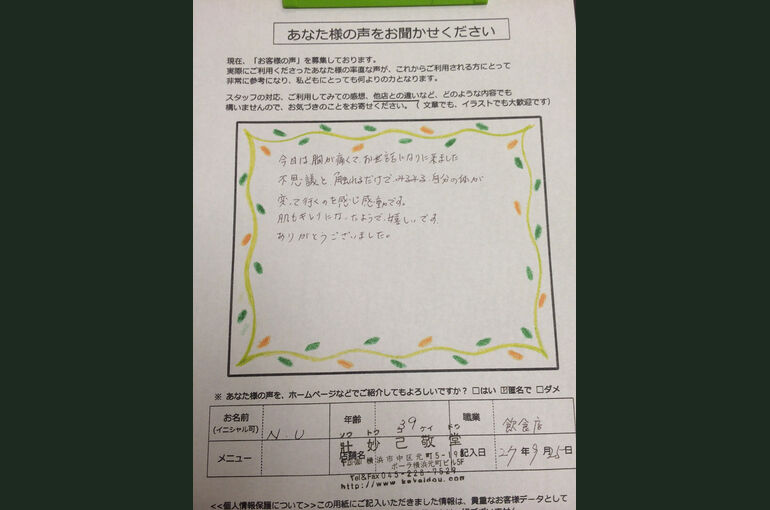 あなた様の声をお聞かせください
現在、「お客様の声」を募集しております。
実際にご利用くださったあなた様の率直な声が、これからご利用される方にとって
非常に参考になり、私どもにとっても何よりの力となります。
スタッフの対応、ご利用してみての感想、他店との違いなど、どのような内容でも
構いませんので、お気づきのことをお寄せください。（文章でも、イラストでも大歓迎です）
今日は胸が痛くて、お世話になりに来ました
不思議と触れるだけで、みるみる自分の体が
変って行くのを感じ感動です。
肌もキレイになったようで嬉しいです
ありがとうございました。
※ あなた様の声を、ホームページなどでご紹介してもよろしいですか？ □はい ☑匿名で □ダメ
お名前 (イニシャル可) N.U 年齢 39 職業 飲食店
ソウ トウ コ ケイ ドウ
壮 妙 己 敬 堂
メニュー 店舗名 横浜市中区元町5-19 記入日 27年9月25日
ポーラ横浜元町ビル5F
Tel&Fax 045-228-7529
http://www.kokeidou.com
<<個人情報保護について>>この用紙にご記入いただきました情報は、貴重なお客様データとして